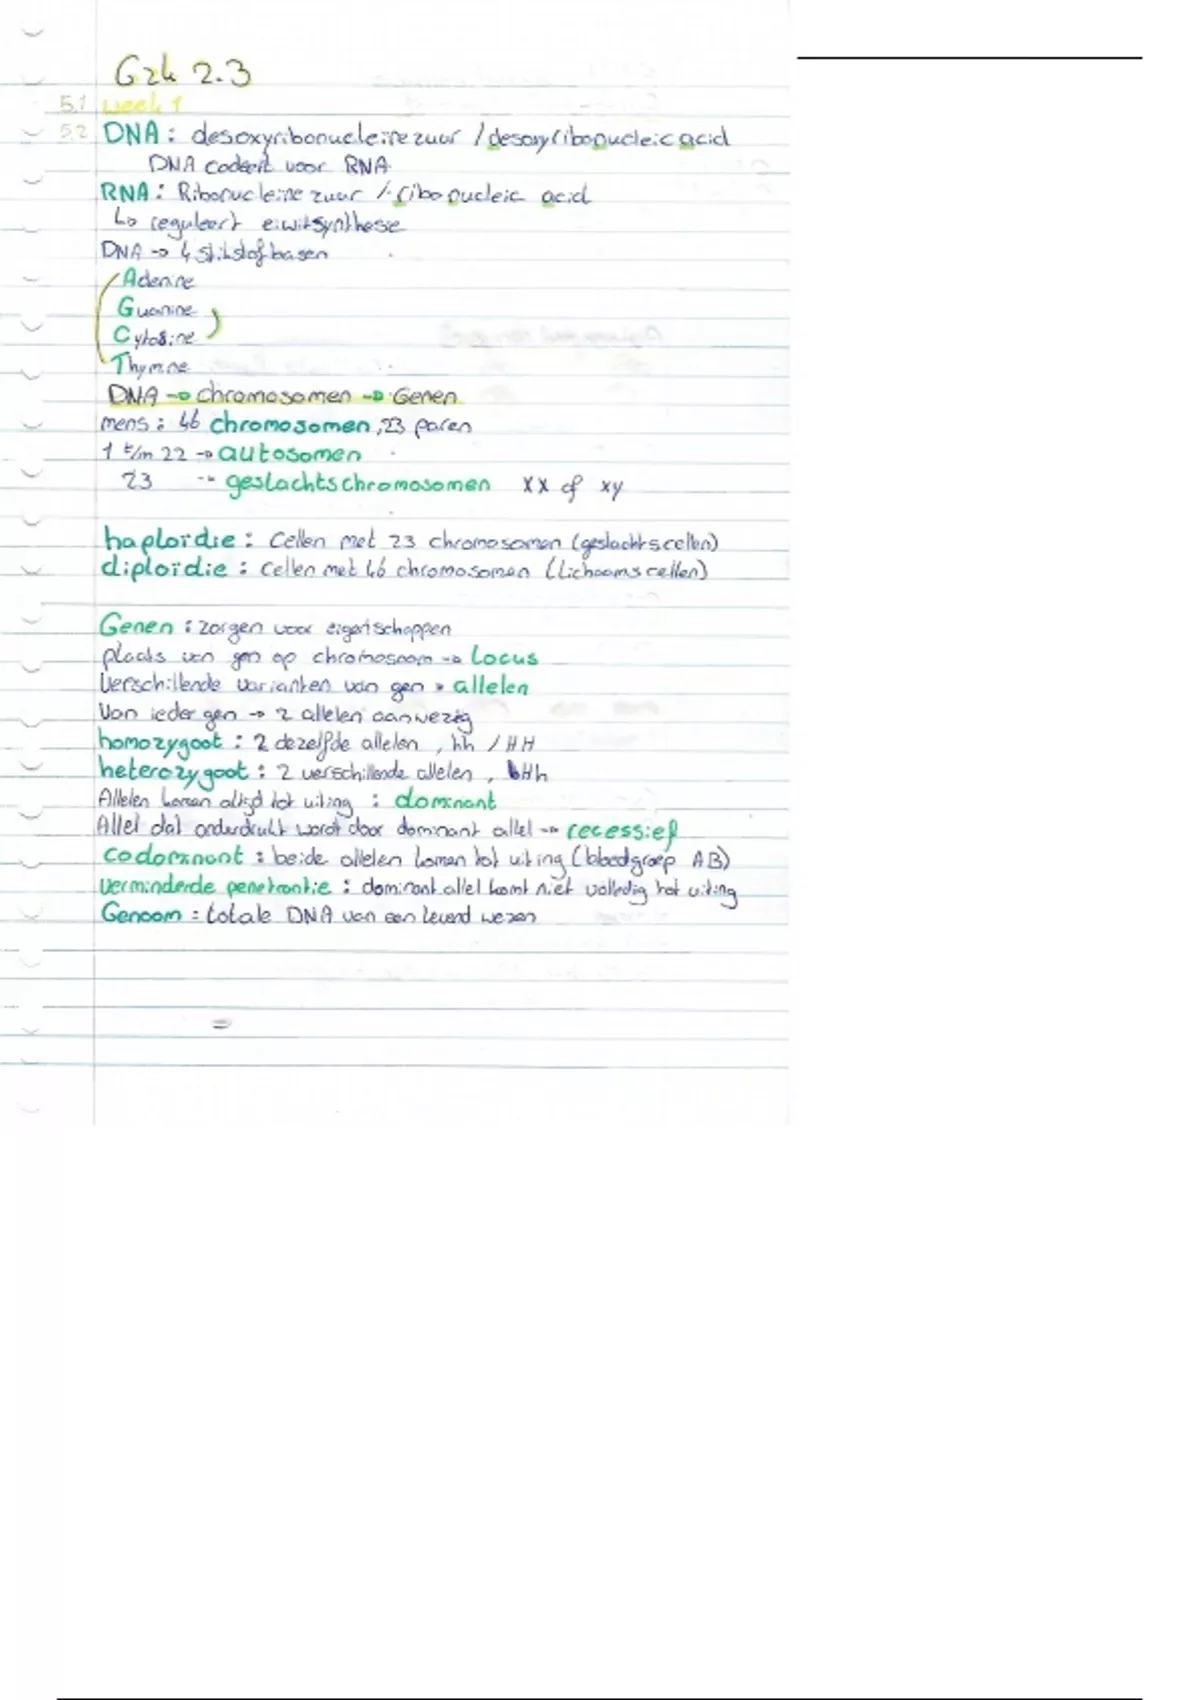 Gzk 2.3
5.1 week 1
5.2 DNA : desoxyribonucleïnezuur / desoxyribonucleic acid
DNA codeert voor RNA
RNA : Ribonucleïnezuur / ribonucleic acid
↳ reguleert eiwitsynthese
DNA → 4 stikstofbasen
Adenine
Guanine
Cytosine
Thymine
DNA → chromosomen → Genen
mens : 46 chromosomen, 23 paren
1 t/m 22 → autosomen
23 → geslachtschromosomen XX of xy
haploïdie : Cellen met 23 chromosomen (geslachtscellen)
diploïdie : Cellen met 46 chromosomen (Lichaamscellen)
Genen : zorgen voor eigenschappen
plaats van gen op chromosoom → Locus
Verschillende varianten van gen → allelen
Van ieder gen → 2 allelen aanwezig
homozygoot : 2 dezelfde allelen , hh / HH
heterozygoot : 2 verschillende allelen , Hh
Allelen komen altijd tot uiting : dominant
Allel dat onderdrukt wordt door dominant allel → recessief
Codominant : beide allelen komen tot uiting (bloedgroep AB)
Verminderde penetrantie : dominant allel komt niet volledig tot uiting
Genoom : totale DNA van een levend wezen